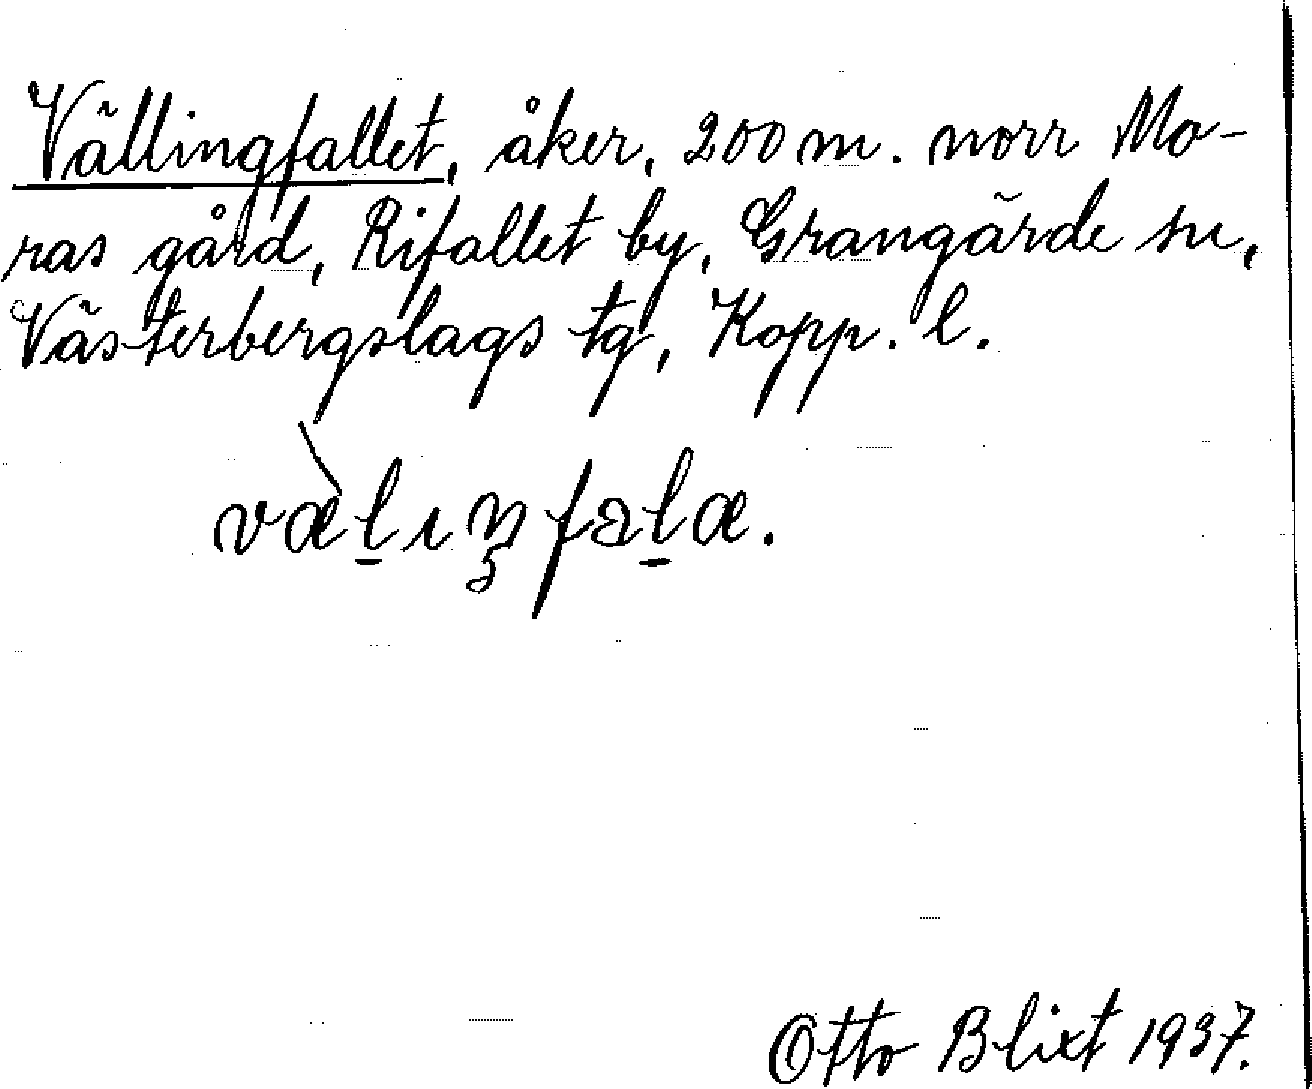 Vällingfallet, åker, 200 m. norr Mo-
ras gård, Rifallet by, Grangärde sn,
Västerbergslags tg, Kopp. l.
Otto Blixt 1937.